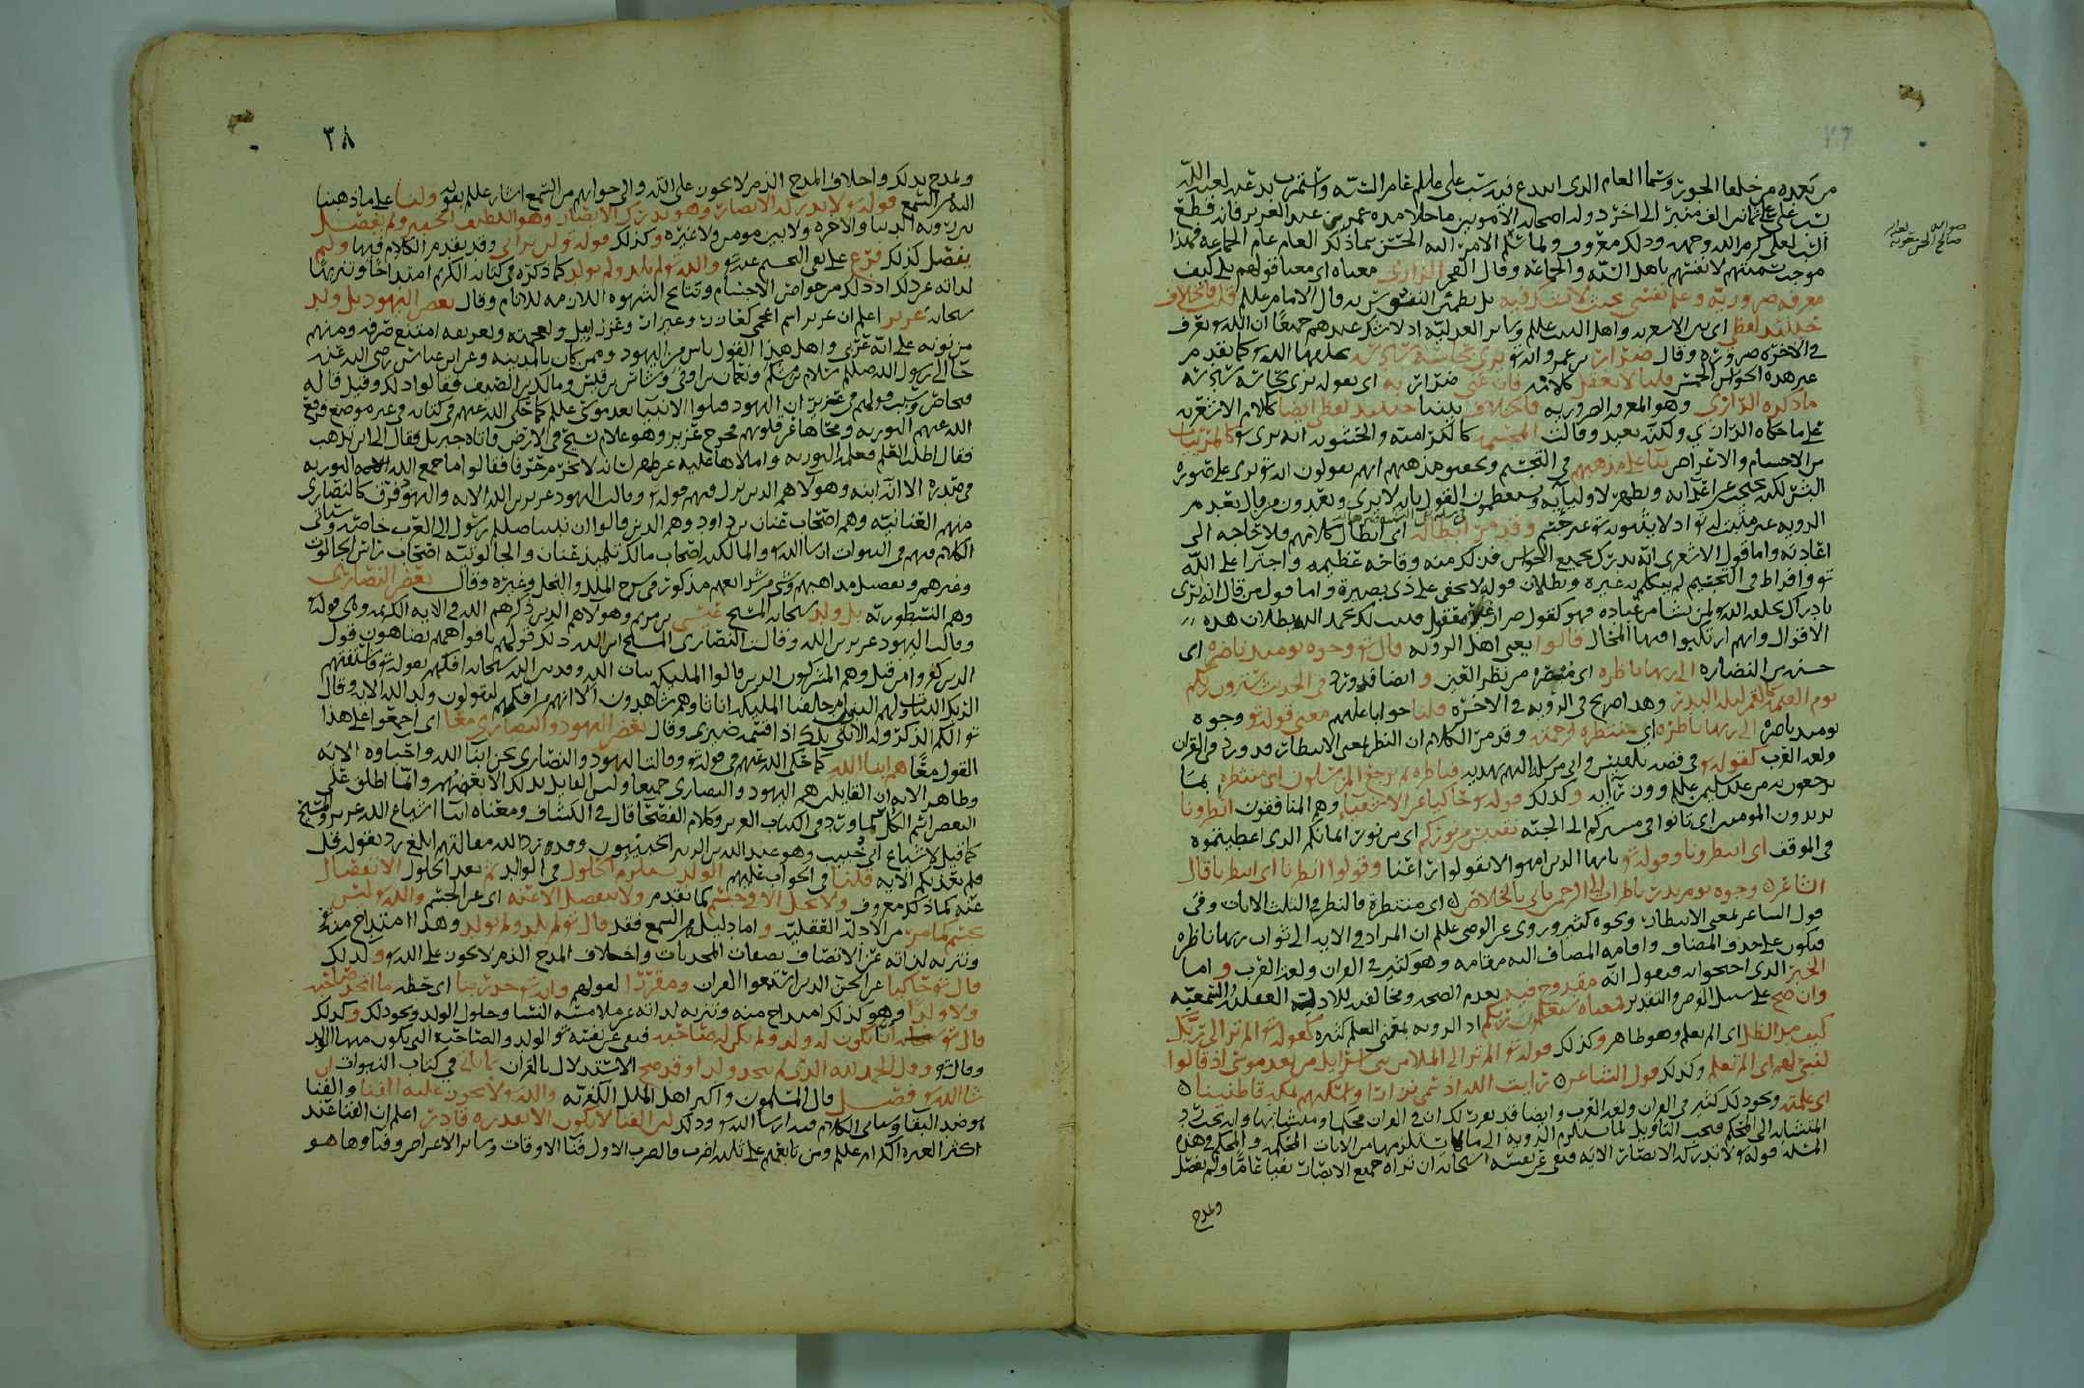 من بعده من خلفا الجور وسما العام الذي ابتدع فيه سب علي عليلم عام السنه واستمرت بدعته لعنه الله
الى اخر دوله اصحابه الامويين ما خلا مده عمر بن عبد العزيز فانه قطع
السب لعلي كرم الله وجهه وذلك معروف ولما سلم الامر اليه الحسن سما ذلك العام عام الجماعه فهذا
موجب تسميتهم لانفسهم باهل السنه والجماعه وقال الفخر الرازي معناه اي معنا قولهم بلا كيف
معرفه ضروريه وعلم نفسي بحيث لا يشك فيه بل تطمئن النفوس به قال الامام عليلم قلنا فالخلاف
حينئذ لفظي اي بين الاشعريه واهل البيت عليلم وسائر العدليه اذ لا شك عندهم جميعا ان الله تع يعرف
في الاخره ضروره وقال ضرار بن عمرو انه تع يرى بحاسه سادسه
غير هذه الحواس الخمس قلنا لا يعقل كلامه فان عنى ضرار به اي بقوله يرى بحاسه سادسه
ما ذكره الرازي وهو المعرفه الضروريه فالخلاف بيننا حينئذ لفظي ايضا ككلام الاشعريه
على ما حكاه الرازي ولكنه بعيد وقالت المجسمه كالكراميه والحشويه انه يرى تع كالمرئيات
من الاجسام والاعراض بنا على مذهبهم في التجسيم وتحقيق مذهبهم انهم يقولون انه تع يرى على صوره
الرويه غير مثبت له تع اذ لا يثبتونه تع غير جسم وقد مر ابطاله اي ابطال كلامهم فلا حاجه الى
اعادته واما قول الاشعري انه يدرك بجميع الحواس فذلك منه وقاحه عظيمه واجترا على الله
تع وافراط في التجسيم لم يتكلم به غيره وبطلان قوله لا يخفى على ذي بصيره واما قول من قال انه يرى
الاقوال وانهم ارتكبوا فيها المحال قالوا يعني اهل الرويه قال تع وجوه يومئذ ناضره اي
حسنه من النضاره الى ربها ناظره اي مبصره من نظر العين وايضا قد ورد في الحديث سترون ربكم
يوم القيمه كالقمر ليله البدر وهذا صريح في الرويه في الاخره قلنا جوابا عليهم معنى قوله تع وجوه
يومئذ ناضره الى ربها ناظره اي منتظره رحمته وقد مر الكلام ان النظر بمعنى الانتظار قد ورد في القران
ولغه العرب كقوله تع في قصه بلقيس واني مرسله اليهم بهديه فناظره بم يرجع المرسلون اي منتظره بما
يرجعون به من عند سليمن عليلم وكذلك قوله تع حاكيا عن الاشقياء وهم المنافقون انظرونا
يريدون المومنين اي تانوا في مسيركم الى الجنه نقتبس من نوركم اي من نور ايمانكم الذي اعطيتموه
في الموقف اي انتظرونا وقوله تع يا ايها الذين امنوا لا تقولوا راعنا وقولوا انظرنا اي انتظرنا قال
الشاعر وجوه يوم بدر ناظرات الى الرحمن ياتي بالخلاص اي منتظره فالنظر في الثلث الايات وفي
قول الشاعر بمعنى الانتظار ونحوه كثير وروي عن الوصي عليلم ان المراد في الايه الى ثواب ربها ناظره
فيكون على حذف المضاف واقامه المضاف اليه مقامه وهو كثير في القران ولغه العرب واما
الخبر الذي احتجوا به فنقول انه مقدوح فيه بعدم الصحه ومخالفته للادله العقليه والسمعيه
وان صح على سبيل الفرض والتقدير فمعناه ستعلمون ربكم اذ الرويه بمعنى العلم كثيره كقوله تع الم تر الى ربك
كيف مد الظل اي الم تعلم وهو ظاهر وكذلك قوله تع الم تر الى الملا من بني اسرايل من بعد موسى اذ قالوا
لنبي لهم اي الم تعلم وكذلك قول الشاعر رايت الله اذ سمى نزارا واسكنهم بمكه قاطنينا
اي علمته ونحو ذلك كثير في القران ولغه العرب وايضا قد تقرر لك ان في القران محكما ومتشابها وانه يجب رد
المتشابه الى المحكم
المثله قوله تع لا تدركه الابصار الايه فنفى عن نفسه سبحانه ان تراه جميع الابصار نفيا عاما ولم يفصل
وتمدح
٣٨
وتمدح بذلك واخلاف المدح الذم لا يجوز على الله والى جوابهم من السمع اشار عليلم بقوله ولنا على ما ذهبنا
اليه من السمع قوله تع لا تدركه الابصار وهو يدرك الابصار وهو اللطيف الخبير ولم يفصل
بين رويه الدنيا والاخره ولا بين مومن ولا غيره وكذلك قوله تع لن تراني وقد تقدم الكلام فيها ولم
يفصل كذلك فرع على نفي التجسيم عنه تع والله تع لم يلد ولم يولد كما ذكره في كتابه الكريم امتداحا وتنزيها
لذاته عن ذلك اذ ذلك من خواص الاجسام ونتايج الشهوه اللازمه للانام وقال بعض اليهود بل ولد
سبحانه عزير اعلم ان عزير اسم اعجمي كعازر وعيزار وعزرائيل ولعجمته وتعريفه امتنع صرفه ومنهم
من نونه على انه عربي واهل هذا القول ناس من اليهود وممن كان بالمدينه وعن ابن عباس رضي الله عنه
جا الى رسول الله صللم سلام بن مشكم ونعمان بن اوفى وشاس بن قيس ومالك بن الصيف فقالوا ذلك وقيل قاله
فنحاص وسبب قولهم في عزير ان اليهود قتلوا الانبيا بعد موسى عليلم كما حكى الله عنهم في كتابه في غير موضع فرفع
الله عنهم التوريه ومحاها عن قلوبهم فخرج عزير وهو غلام يسيح في الارض فاتاه جبريل فقال الى اين تذهب
فقال اطلب العلم فعلمه التوريه واملاها عليه عن ظهر لسانه لا يخرم حرفا فقالوا ما جمع الله التوريه
في صدره الا انه ابنه وهولا هم الذين نزل فيهم قوله تع وقالت اليهود عزير بن الله الايه واليهود فرق كالنصارى
منهم العنانيه وهم اصحاب عنان بن داود وهم الذين قالوا ان نبينا صللم رسول الى العرب خاصه وسياتي
الكلام فيهم في النبوات ان شا الله تع والمالكيه اصحاب مالك تلميذ عنان والجالوتيه اصحاب راس الجالوت
وغيرهم وتفصيل مذاهبهم وشي من شرايعهم مذكور في شرح الملل والنحل وغيره وقال بعض النصارى
وهم النسطوريه بل ولد سبحانه المسيح عيسى بن مريم وهولا هم الذين ذكرهم الله في الايه الكريمه وهي قوله تع
وقالت اليهود عزير بن الله وقالت النصارى المسيح ابن الله ذلك قولهم بافواههم يضاهون قول
الذين كفروا من قبل وهم المشركون الذين قالوا المليكه بنات الله وقد بين الله سبحانه افكهم بقوله تع فاستفتهم
الربك البنات ولهم البنون ام خلقنا المليكه اناثا وهم شاهدون الا انهم من افكهم ليقولون ولد الله الايه وقال
تع الكم الذكر وله الانثى تلك اذا قسمه ضيزى وقال بعض اليهود والنصارى معا اي اجمعوا على هذا
القول معا هم ابنا الله كما حكى الله عنهم في قوله تع وقالت اليهود والنصارى نحن ابنا الله واحباوه الايه
وظاهر الايه ان القايلين هم اليهود والنصارى جميعا وليس القايل بذلك الا بعض منهم وانما اطلق على
البعض اسم الكل كما ورد في الكتاب العزيز وكلام الفصحا قال في الكشاف ومعناه ابنا اشياع الله عزير والمسيح
كما قيل لاشياع ابي خبيب وهو عبد الله بن الزبير الخبيبيون وقد رد الله مقالتهم ابلغ رد بقوله قل
فلم يعذبكم الايه قلنا في الجواب عليهم الولد يستلزم الحلول في الوالد ثم بعد الحلول الانفصال
عنه كما ذلك معروف ولا يحل الا في جسم كما تقدم ولا ينفصل الا عنه اي عن الجسم والله تع ليس
بجسم لما مر من الادله العقليه واما دليله من السمع فقد قال تع لم يلد ولم يولد وهذا امتداح منه تع
وتنزيه لذاته عن الاتصاف بصفات المحدثات واخلاف المدح الذم لا يجوز على الله تع وكذلك
قال تع حاكيا عن الجن الذين استمعوا القران ومقررا لقولهم وانه تع جد ربنا اي حظه ما اتخذ صاحبه
ولا ولدا وهو كذلك امتداح منه وتنزيه لذاته عن ملامسه النسا وحلول الولد ونحو ذلك وكذلك
قال تع انا يكون له ولد ولم تكن له صاحبه فنفى عن نفسه تع الولد والصاحبه التي يكون منها الولد
وقال تع وقل الحمد لله الذي لم يتخذ ولدا وقد صح الاستدلال بالقران بما ياتي في كتاب النبوات ان
شا الله تع فصل قال المسلمون واكثر اهل الملل الكفريه والله تع لا يجوز عليه الفنا والفنا
هو ضد البقا وسياتي الكلام فيه ان شا الله تع وذلك لان الفنا لا يكون الا بقدره قادر اعلم ان الفنا عند
اكثر العتره الكرام عليلم ومن تابعهم على ثلثه اضرب فالضرب الاول فنا الاوقات وسائر الاعراض وفناوها هو